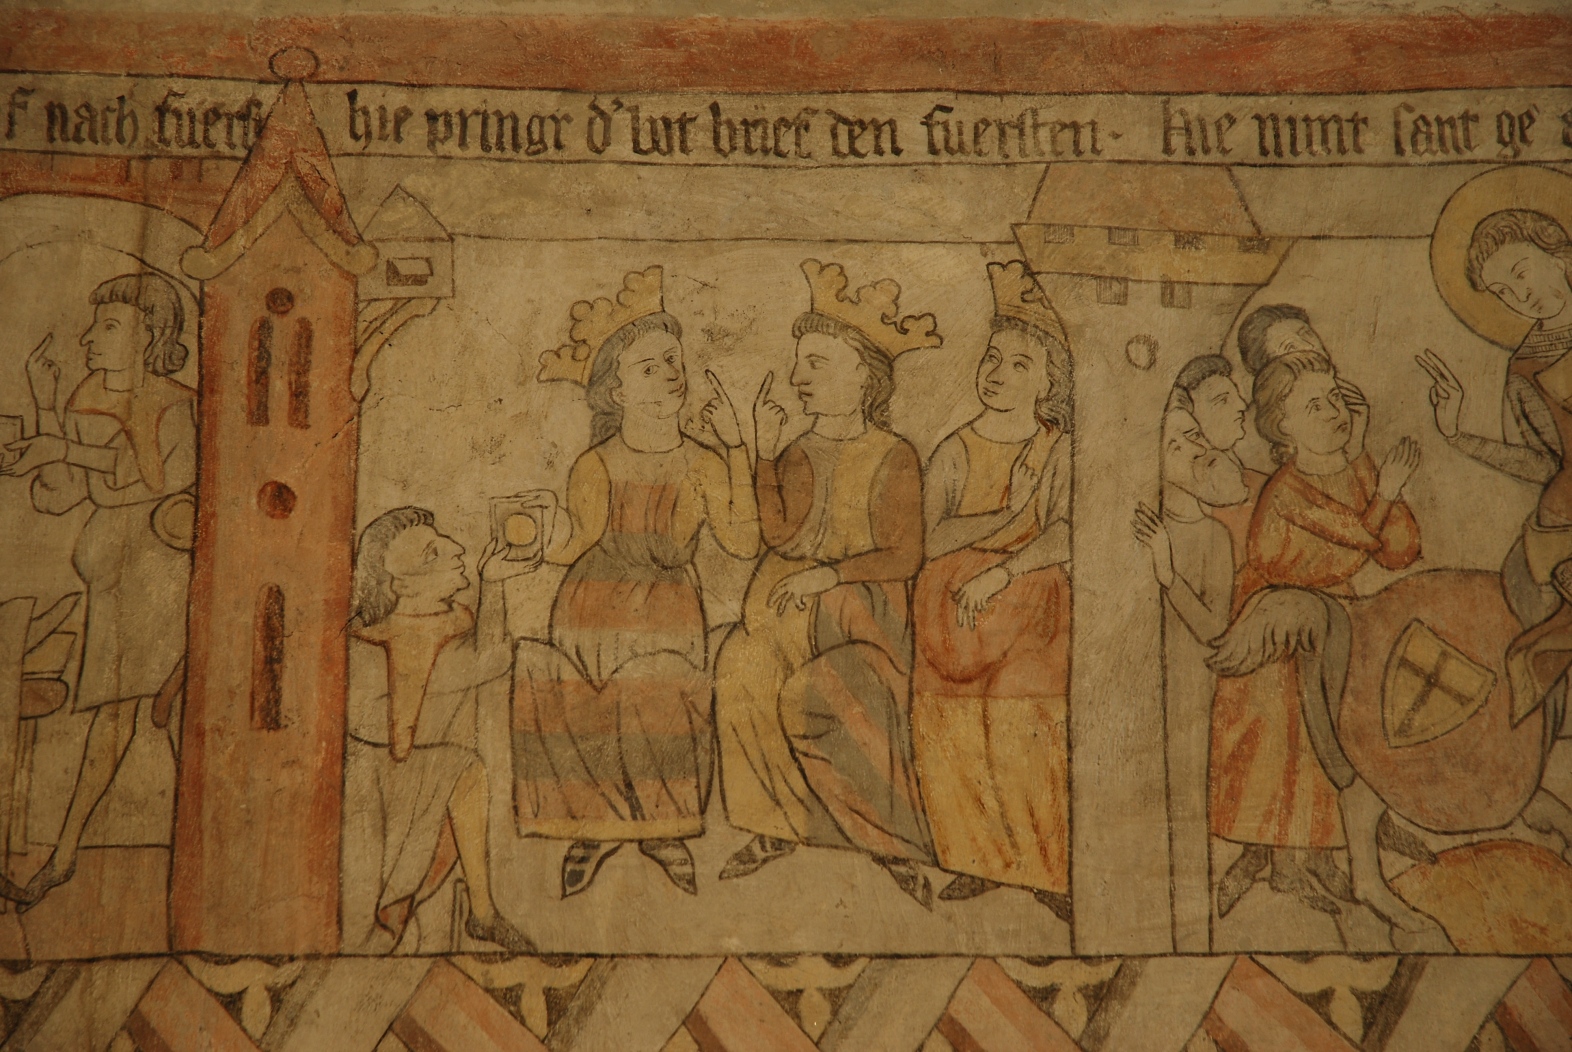 f nach fuerst hie pringt d' bot brief den fuersten · Hie nimt sant ge